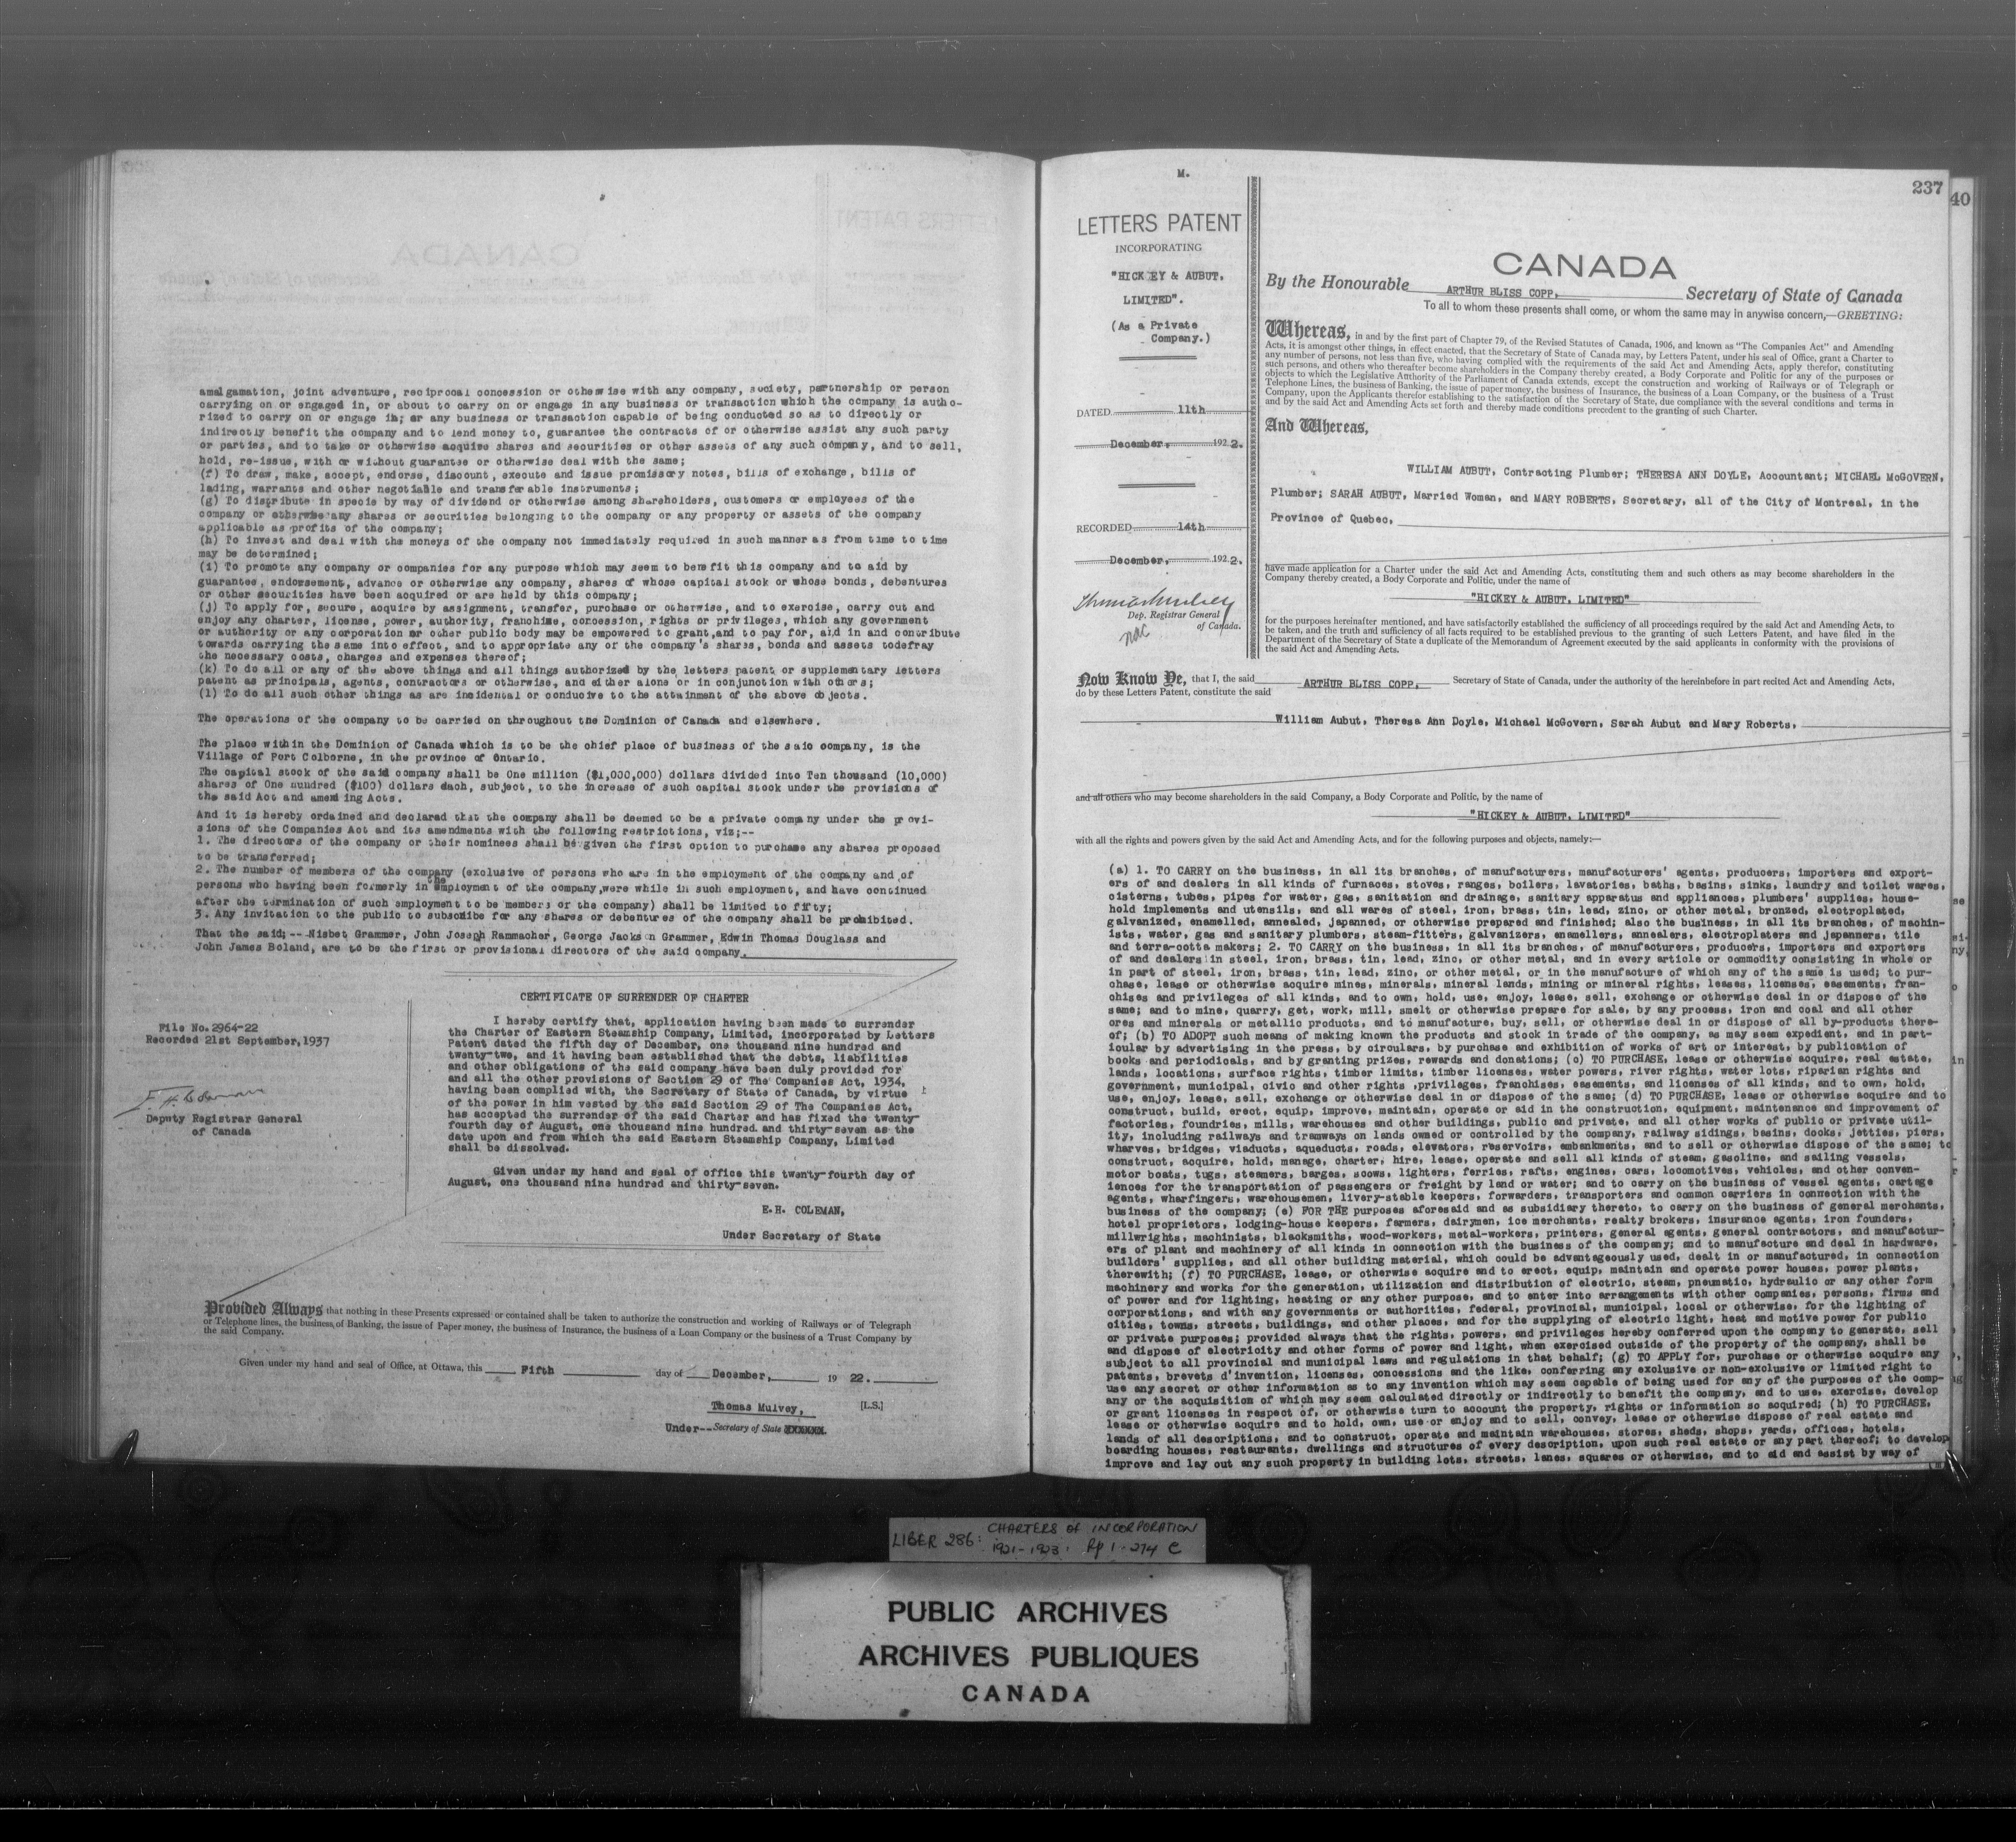 amalgamation, joint adventure, reciprocal concession or otherwise with any company, society, partnership or person
carrying on or engaged in, or about to carry on or engage in any business or transaction which the company is autho-
rized to carry on or engage in; or any business or transaction capable of being conducted so as to directly or
indirectly benefit the company and to lend money to, guarantee the contracts of or otherwise assist any such party
or parties, and to take or otherwise acquire shares and securities or other assets of any such company, and to sell,
hold, re-issue, with or without guarantee or otherwise deal with the same;
(f) To draw, make, accept, endorse, discount, execute and issue promissory notes, bills of exchange, bills of
lading, warrants and other negotiable and transferable instruments;
(g) To distribute in specie by way of dividend or otherwise among shareholders, customers or employees of the
company or otherwise any shares or securities belonging to the company or any property or assets of the company
applicable as profits of the company;
(h) To invest and deal with the moneys of the company not immediately required in such manner as from time to time
may be determined;
(i) To promote any company or companies for any purpose which may seem to benefit this company and to aid by
guarantee, endorsement, advance or otherwise any company, shares of whose capital stock or whose bonds, debentures
or other securities have been acquired or are held by this company;
(j) To apply for, secure, acquire by assignment, transfer, purchase or otherwise, and to exercise, carry out and
enjoy any charter, license, power, authority, franchise, concession, rights or privileges, which any government
or authority or any corporation or other public body may be empowered to grant,and to pay for, aid in and contribute
towards carrying the same into effect, and to appropriate any of the company's shares, bonds and assets todefray
the necessary costs, charges and expenses thereof;
(k) To do all or any of the above things and all things authorized by the letters patent or supplementary letters
patent as principals, agents, contractors or otherwise, and either alone or in conjunction with others;
(l) To do all such other things as are incidental or conducive to the attainment of the above objects.
The operations of the company to be carried on throughout the Dominion of Canada and elsewhere.
The place within the Dominion of Canada which is to be the chief place of business of the said company, is the
Village of Port Colborne, in the province of Ontario.
The capital stock of the said company shall be One million ($1,000,000) dollars divided into Ten thousand (10,000)
shares of One hundred ($100) dollars each, subject, to the increase of such capital stock under the provisions of
the said Act and amending Acts.
And it is hereby ordained and declared that the company shall be deemed to be a private company under the provi-
sions of the Companies Act and its amendments with the following restrictions, viz;--
1. The directors of the company or their nominees shall be given the first option to purchase any shares proposed
to be transferred;
2. The number of members of the company (exclusive of persons who are in the employment of the company and of
persons who having been formerly in the employment of the company,were while in such employment, and have continued
after the termination of such employment to be members of the company) shall be limited to fifty;
3. Any invitation to the public to subscribe for any shares or debentures of the company shall be prohibited.
That the said; -- Nisbet Grammer, John Joseph Rammacher, George Jackson Grammer, Edwin Thomas Douglass and
John James Boland, are to be the first or provisional directors of the said company.
CERTIFICATE OF SURRENDER OF CHARTER
File No. 2964-22
Recorded 21st September, 1937
Deputy Registrar General
of Canada
I hereby certify that, application having been made to surrender
the Charter of Eastern Steamship Company, Limited, incorporated by Letters
Patent dated the fifth day of December, one thousand nine hundred and
twenty-two, and it having been established that the debts, liabilities
and other obligations of the said company have been duly provided for
and all the other provisions of Section 29 of The Companies Act, 1934,
having been complied with, the Secretary of State of Canada, by virtue
of the power in him vested by the said Section 29 of The Companies Act,
has accepted the surrender of the said Charter and has fixed the twenty-
fourth day of August, one thousand nine hundred and thirty-seven as the
date upon and from which the said Eastern Steamship Company, Limited
shall be dissolved.
Given under my hand and seal of office this twenty-fourth day of
August, one thousand nine hundred and thirty-seven.
E.H. COLEMAN,
Under Secretary of State
Provided Always that nothing in these Presents expressed or contained shall be taken to authorize the construction and working of Railways or of Telegraph
or Telephone lines, the business of Banking, the issue of Paper money, the business of Insurance, the business of a Loan Company or the business of a Trust Company by
the said Company.
Given under my hand and seal of Office, at Ottawa, this Fifth day of December, 19 22.
Thomas Mulvey, [L.S.]
Under--Secretary of State
M.
237
40
LETTERS PATENT
INCORPORATING
"HICKEY & AUBUT,
LIMITED".
(As a Private
Company.)
DATED 11th
December, 192 2.
RECORDED 14th
December, 192 2.
Dep. Registrar General
of Canada.
CANADA
By the Honourable ARTHUR BLISS COPP, Secretary of State of Canada
To all to whom these presents shall come, or whom the same may in anywise concern,—GREETING:
Whereas, in and by the first part of Chapter 79, of the Revised Statutes of Canada, 1906, and known as "The Companies Act" and Amending
Acts, it is amongst other things, in effect enacted, that the Secretary of State of Canada may, by Letters Patent, under his seal of Office, grant a Charter to
any number of persons, not less than five, who having complied with the requirements of the said Act and Amending Acts, apply therefor, constituting
such persons, and others who thereafter become shareholders in the Company thereby created, a Body Corporate and Politic for any of the purposes or
objects to which the Legislative Authority of the Parliament of Canada extends, except the construction and working of Railways or of Telegraph or
Telephone Lines, the business of Banking, the issue of paper money, the business of Insurance, the business of a Loan Company, or the business of a Trust
Company, upon the Applicants therefor establishing to the satisfaction of the Secretary of State, due compliance with the several conditions and terms in
and by the said Act and Amending Acts set forth and thereby made conditions precedent to the granting of such Charter.
And Whereas,
WILLIAM AUBUT, Contracting Plumber; THERESA ANN DOYLE, Accountant; MICHAEL McGOVERN,
Plumber; SARAH AUBUT, Married Woman, and MARY ROBERTS, Secretary, all of the City of Montreal, in the
Province of Quebec,
have made application for a Charter under the said Act and Amending Acts, constituting them and such others as may become shareholders in the
Company thereby created, a Body Corporate and Politic, under the name of
"HICKEY & AUBUT, LIMITED"
for the purposes hereinafter mentioned, and have satisfactorily established the sufficiency of all proceedings required by the said Act and Amending Acts, to
be taken, and the truth and sufficiency of all facts required to be established previous to the granting of such Letters Patent, and have filed in the
Department of the Secretary of State a duplicate of the Memorandum of Agreement executed by the said applicants in conformity with the provisions of
the said Act and Amending Acts.
Now Know Ye, that I, the said ARTHUR BLISS COPP, Secretary of State of Canada, under the authority of the hereinbefore in part recited Act and Amending Acts,
do by these Letters Patent, constitute the said
William Aubut, Theresa Ann Doyle, Michael McGovern, Sarah Aubut and Mary Roberts,
and all others who may become shareholders in the said Company, a Body Corporate and Politic, by the name of
"HICKEY & AUBUT, LIMITED"
with all the rights and powers given by the said Act and Amending Acts, and for the following purposes and objects, namely:—
(a) 1. TO CARRY on the business, in all its branches, of manufacturers, manufacturers' agents, producers, importers and export-
ers of and dealers in all kinds of furnaces, stoves, ranges, boilers, lavatories, baths, basins, sinks, laundry and toilet wares,
cisterns, tubes, pipes for water, gas, sanitation and drainage, sanitary apparatus and appliances, plumbers' supplies, house-
hold implements and utensils, and all wares of steel, iron, brass, tin, lead, zinc, or other metal, bronzed, electroplated,
galvanized, enamelled, annealed, japanned, or otherwise prepared and finished; also the business, in all its branches, of machin-
ists, water, gas and sanitary plumbers, steam-fitters, galvanizers, enamellers, annealers, electroplaters and japanners, tile
and terra-cotta makers; 2. TO CARRY on the business, in all its branches, of manufacturers, producers, importers and exporters
of and dealers in steel, iron, brass, tin, lead, zinc, or other metal, and in every article or commodity consisting in whole or
in part of steel, iron, brass, tin, lead, zinc, or other metal, or in the manufacture of which any of the same is used; to pur-
chase, lease or otherwise acquire mines, minerals, mineral lands, mining or mineral rights, leases, licenses, easements, fran-
chises and privileges of all kinds, and to own, hold, use, enjoy, lease, sell, exchange or otherwise deal in or dispose of the
same; and to mine, quarry, get, work, mill, smelt or otherwise prepare for sale, by any process, iron and coal and all other
ores and minerals or metallic products, and to manufacture, buy, sell, or otherwise deal in or dispose of all by-products there-
of; (b) TO ADOPT such means of making known the products and stock in trade of the company, as may seem expedient, and in part-
icular by advertising in the press, by circulars, by purchase and exhibition of works of art or interest, by publication of
books and periodicals, and by granting prizes, rewards and donations; (c) TO PURCHASE, lease or otherwise acquire, real estate,
lands, locations, surface rights, timber limits, timber licenses, water powers, river rights, water lots, riparian rights and
government, municipal, civic and other rights ,privileges, franchises, easements, and licenses of all kinds, and to own, hold,
use, enjoy, lease, sell, exchange or otherwise deal in or dispose of the same; (d) TO PURCHASE, lease or otherwise acquire and to
construct, build, erect, equip, improve, maintain, operate or aid in the construction, equipment, maintenance and improvement of
factories, foundries, mills, warehouses and other buildings, public and private, and all other works of public or private util-
ity, including railways and tramways on lands owned or controlled by the company, railway sidings, basins, docks, jetties, piers,
wharves, bridges, viaducts, aqueducts, roads, elevators, reservoirs, embankments, and to sell or otherwise dispose of the same; to
construct, acquire, hold, manage, charter, hire, lease, operate and sell all kinds of steam, gasoline, and sailing vessels,
motor boats, tugs, steamers, barges, scows, lighters, ferries, rafts, engines, cars, locomotives, vehicles, and other conven-
iences for the transportation of passengers or freight by land or water; and to carry on the business of vessel agents, cartage
agents, wharfingers, warehousemen, livery-stable keepers, forwarders, transporters and common carriers in connection with the
business of the company; (e) FOR THE purposes aforesaid and as subsidiary thereto, to carry on the business of general merchants,
hotel proprietors, lodging-house keepers, farmers, dairymen, ice merchants, realty brokers, insurance agents, iron founders,
millwrights, machinists, blacksmiths, wood-workers, metal-workers, printers, general agents, general contractors, and manufactur-
ers of plant and machinery of all kinds in connection with the business of the company; and to manufacture and deal in hardware,
builders' supplies, and all other building material, which could be advantageously used, dealt in or manufactured, in connection
therewith; (f) TO PURCHASE, lease, or otherwise acquire and to erect, equip, maintain and operate power houses, power plants,
machinery and works for the generation, utilization and distribution of electric, steam, pneumatic, hydraulic or any other form
of power and for lighting, heating or any other purpose, and to enter into arrangements with other companies, persons, firms and
corporations, and with any governments or authorities, federal, provincial, municipal, local or otherwise, for the lighting of
cities, towns, streets, buildings, and other places, and for the supplying of electric light, heat and motive power for public
or private purposes; provided always that the rights, powers, and privileges hereby conferred upon the company to generate, sell
and dispose of electricity and other forms of power and light, when exercised outside of the property of the company, shall be
subject to all provincial and municipal laws and regulations in that behalf; (g) TO APPLY for, purchase or otherwise acquire any
patents, brevets d'invention, licenses, concessions and the like, conferring any exclusive or non-exclusive or limited right to
use any secret or other information as to any invention which may seem capable of being used for any of the purposes of the comp-
any or the acquisition of which may seem calculated directly or indirectly to benefit the company, and to use, exercise, develop
or grant licenses in respect of, or otherwise turn to account the property, rights or information so acquired; (h) TO PURCHASE,
lease or otherwise acquire and to hold, own, use or enjoy and to sell, convey, lease or otherwise dispose of real estate and
lands of all descriptions, and to construct, operate and maintain warehouses, stores, sheds, shops, yards, offices, hotels,
boarding houses, restaurants, dwellings and structures of every description, upon such real estate or any part thereof; to develop
improve and lay out any such property in building lots, streets, lanes, squares or otherwise, and to aid and assist by way of
LIBER 286: CHARTERS of INCORPORATION
1921-1923. Pp 1-274 C
PUBLIC ARCHIVES
ARCHIVES PUBLIQUES
CANADA